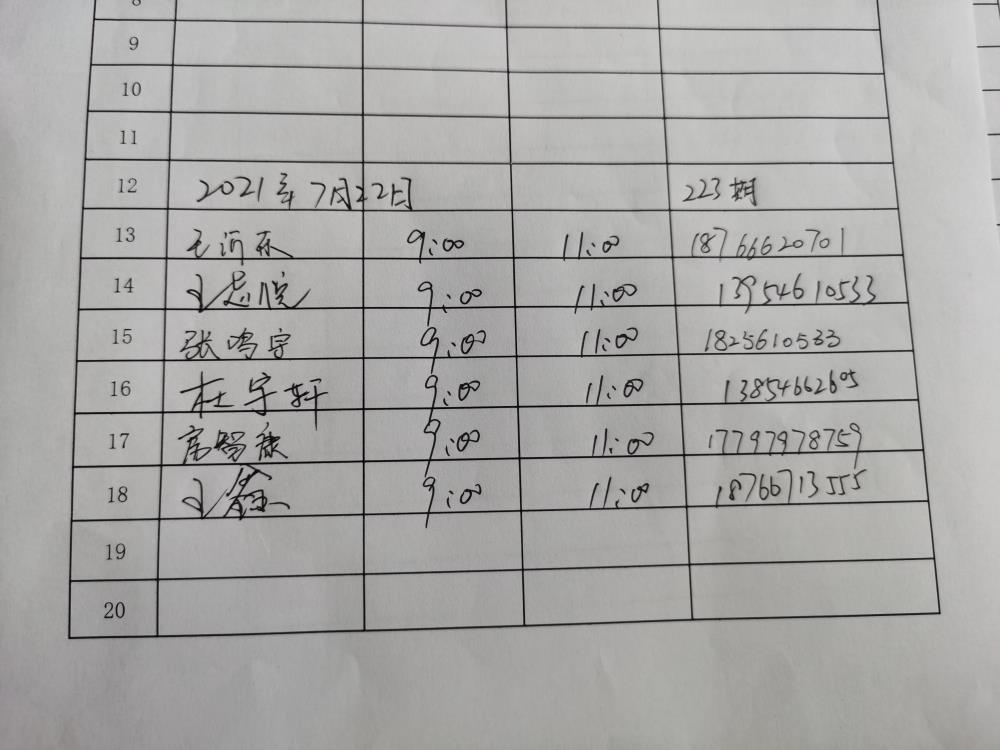 8
9
10
11
12 2021年7月22日 223期
13 王沂 9:00 11:00 18766620701
14 王 9:00 11:00 13954610533
15 张鸣宇 9:00 11:00 1825610533
16 杜宇轩 9:00 11:00 13854662605
17 高智康 9:00 11:00 17797978759
18 王鑫 9:00 11:00 18766713555
19
20